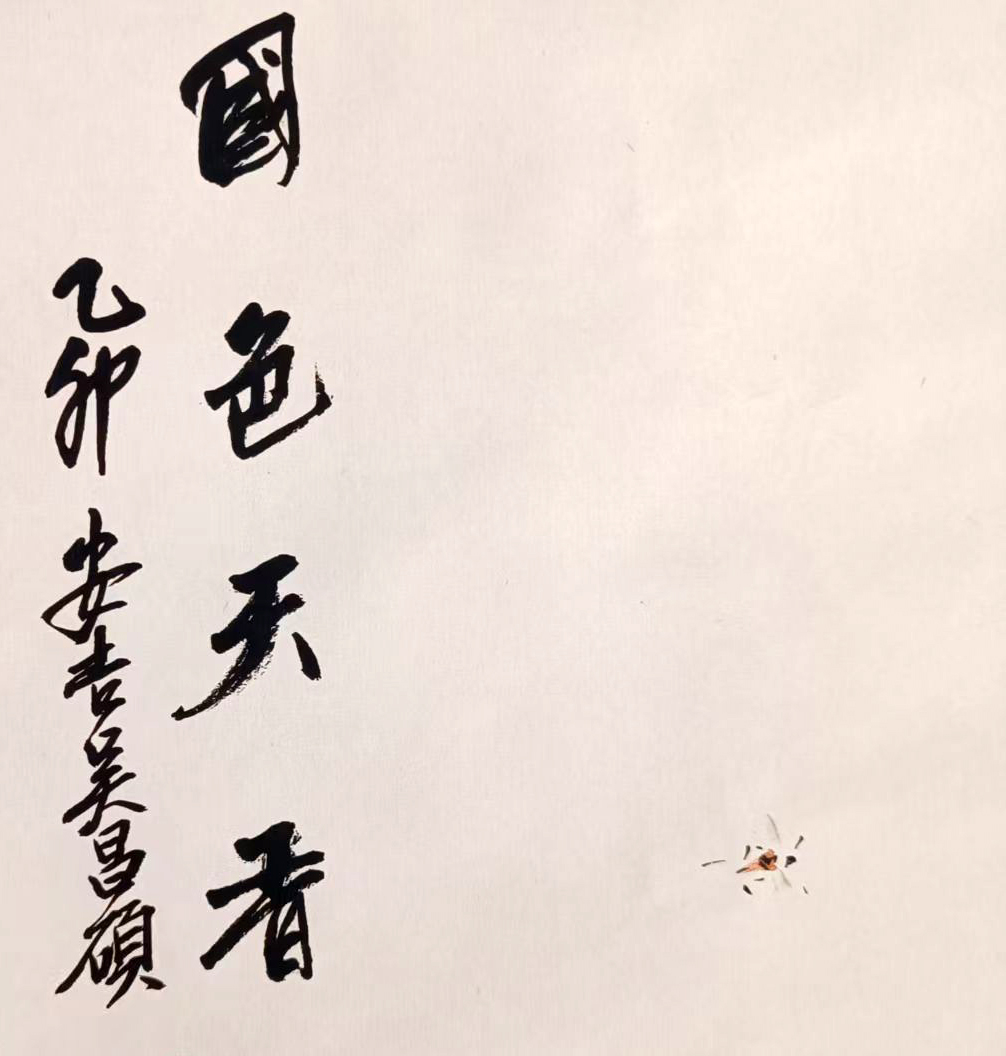 國色天香
乙卯安吉吴昌碩